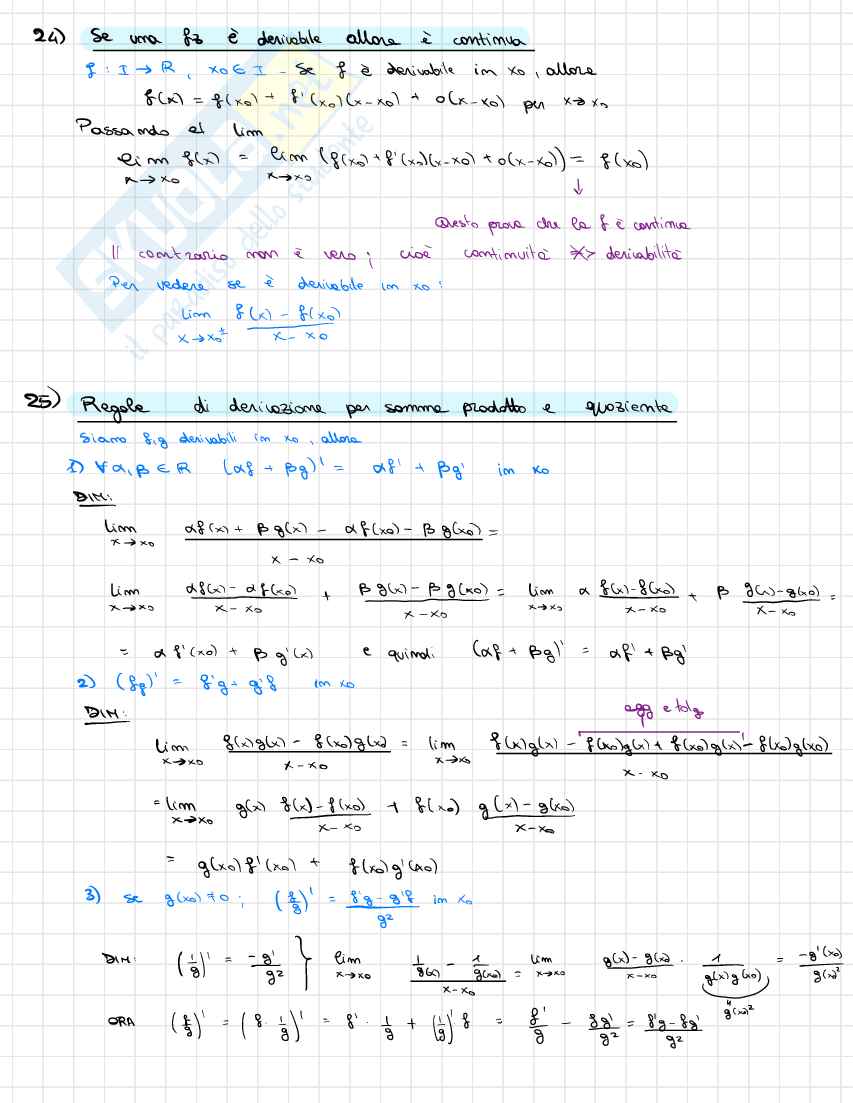 24) Se una fz è derivabile allora è continua
f : I → R, x0 ∈ I - Se f è derivabile in x0, allora
f(x) = f(x0) + f'(x0)(x-x0) + o(x-x0) per x→x0
Passando al lim
lim x→x0 f(x) = lim x→x0 (f(x0) + f'(x0)(x-x0) + o(x-x0)) = f(x0)
↓
Questo prova che la f è continua
Il contrario non è vero; cioè continuità ≠> derivabilità
Per vedere se è derivabile in x0:
lim x→x0± (f(x) - f(x0))/(x - x0)
25) Regole di derivazione per somma prodotto e quoziente
Siano f,g derivabili in x0, allora
1) ∀ α, β ∈ R (αf + βg)' = αf' + βg' in x0
DIM:
lim x→x0 (αf(x) + βg(x) - αf(x0) - βg(x0))/(x - x0) =
lim x→x0 (αf(x) - αf(x0))/(x-x0) + (βg(x) - βg(x0))/(x-x0) = lim x→x0 α (f(x)-f(x0))/(x-x0) + β (g(x)-g(x0))/(x-x0) =
= α f'(x0) + β g'(x) e quindi (αf + βg)' = αf' + βg'
2) (fg)' = f'g + g'f in x0
DIM:
agg e tolg
lim x→x0 (f(x)g(x) - f(x0)g(x0))/(x-x0) = lim x→x0 (f(x)g(x) - f(x0)g(x) + f(x0)g(x) - f(x0)g(x0))/(x-x0)
= lim x→x0 g(x) (f(x)-f(x0))/(x-x0) + f(x0) (g(x)-g(x0))/(x-x0)
= g(x0)f'(x0) + f(x0)g'(x0)
3) se g(x0) ≠ 0; (f/g)' = (f'g - g'f)/g² in x0
DIM: (1/g)' = -g'/g² } lim x→x0 (1/g(x) - 1/g(x0))/(x-x0) = lim x→x0 (g(x) - g(x0))/(x-x0) · 1/(g(x)g(x0)) = -g'(x0)/g(x)²
g(x0)²
ORA (f/g)' = (f · 1/g)' = f' · 1/g + (1/g)' f = f'/g - fg'/g² = (f'g - fg')/g²
SKUOLA.net
il paradiso dello studente